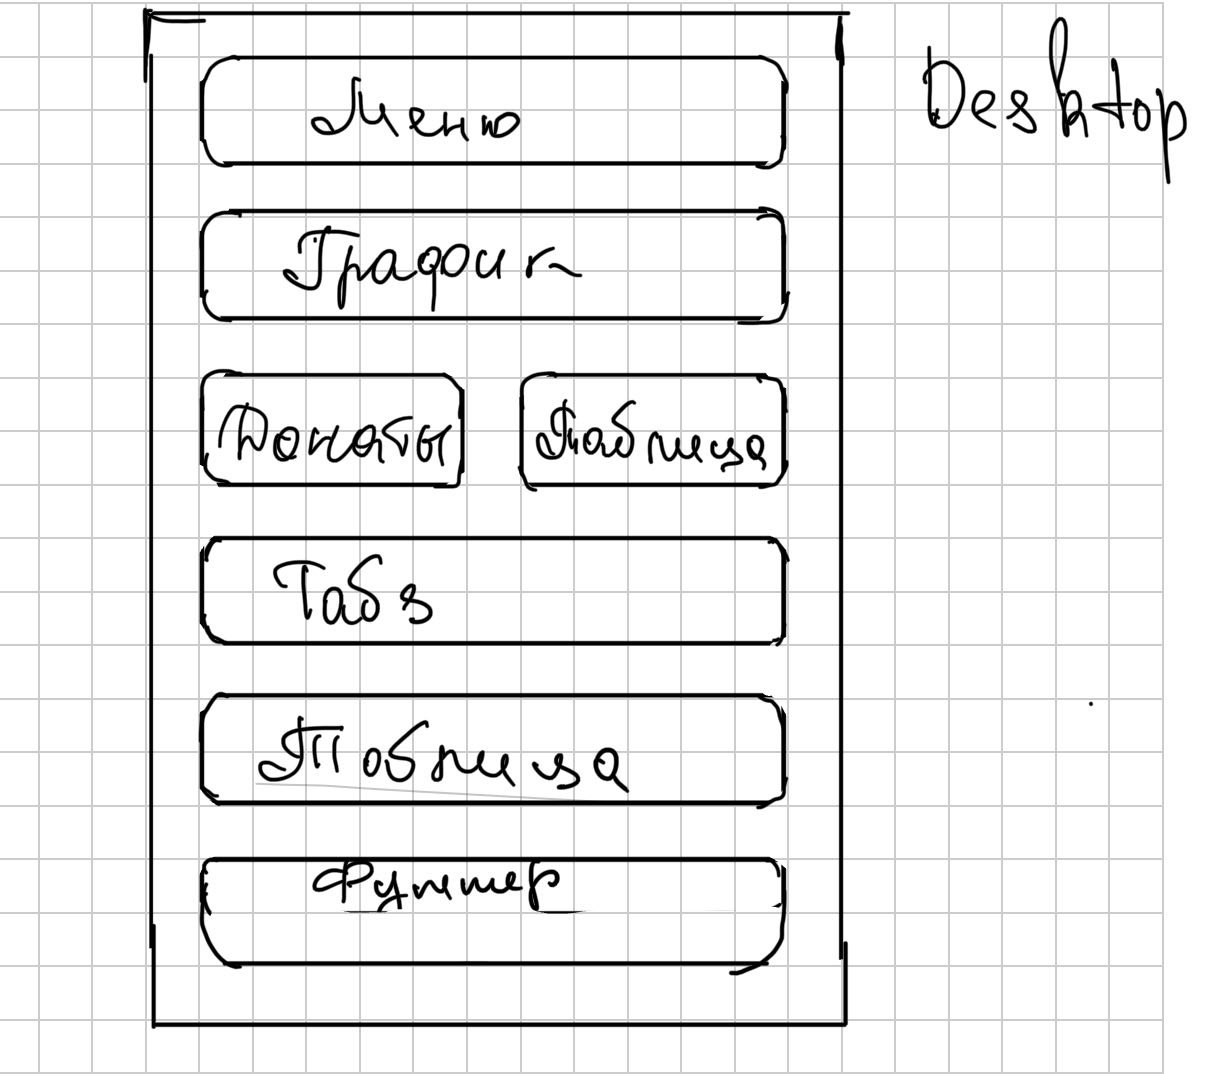 Меню
Desktop
График
Донаты
Таблица
Табз
Таблица
Футер